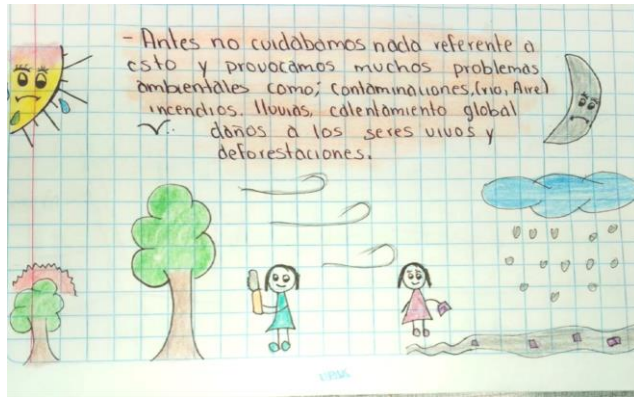 - Antes no cuidábamos nada referente a
esto y provocamos muchos problemas
ambientales como; contaminaciones, (rio, Aire)
incendios. lluvias, calentamiento global
daños a los seres vivos y
deforestaciones.